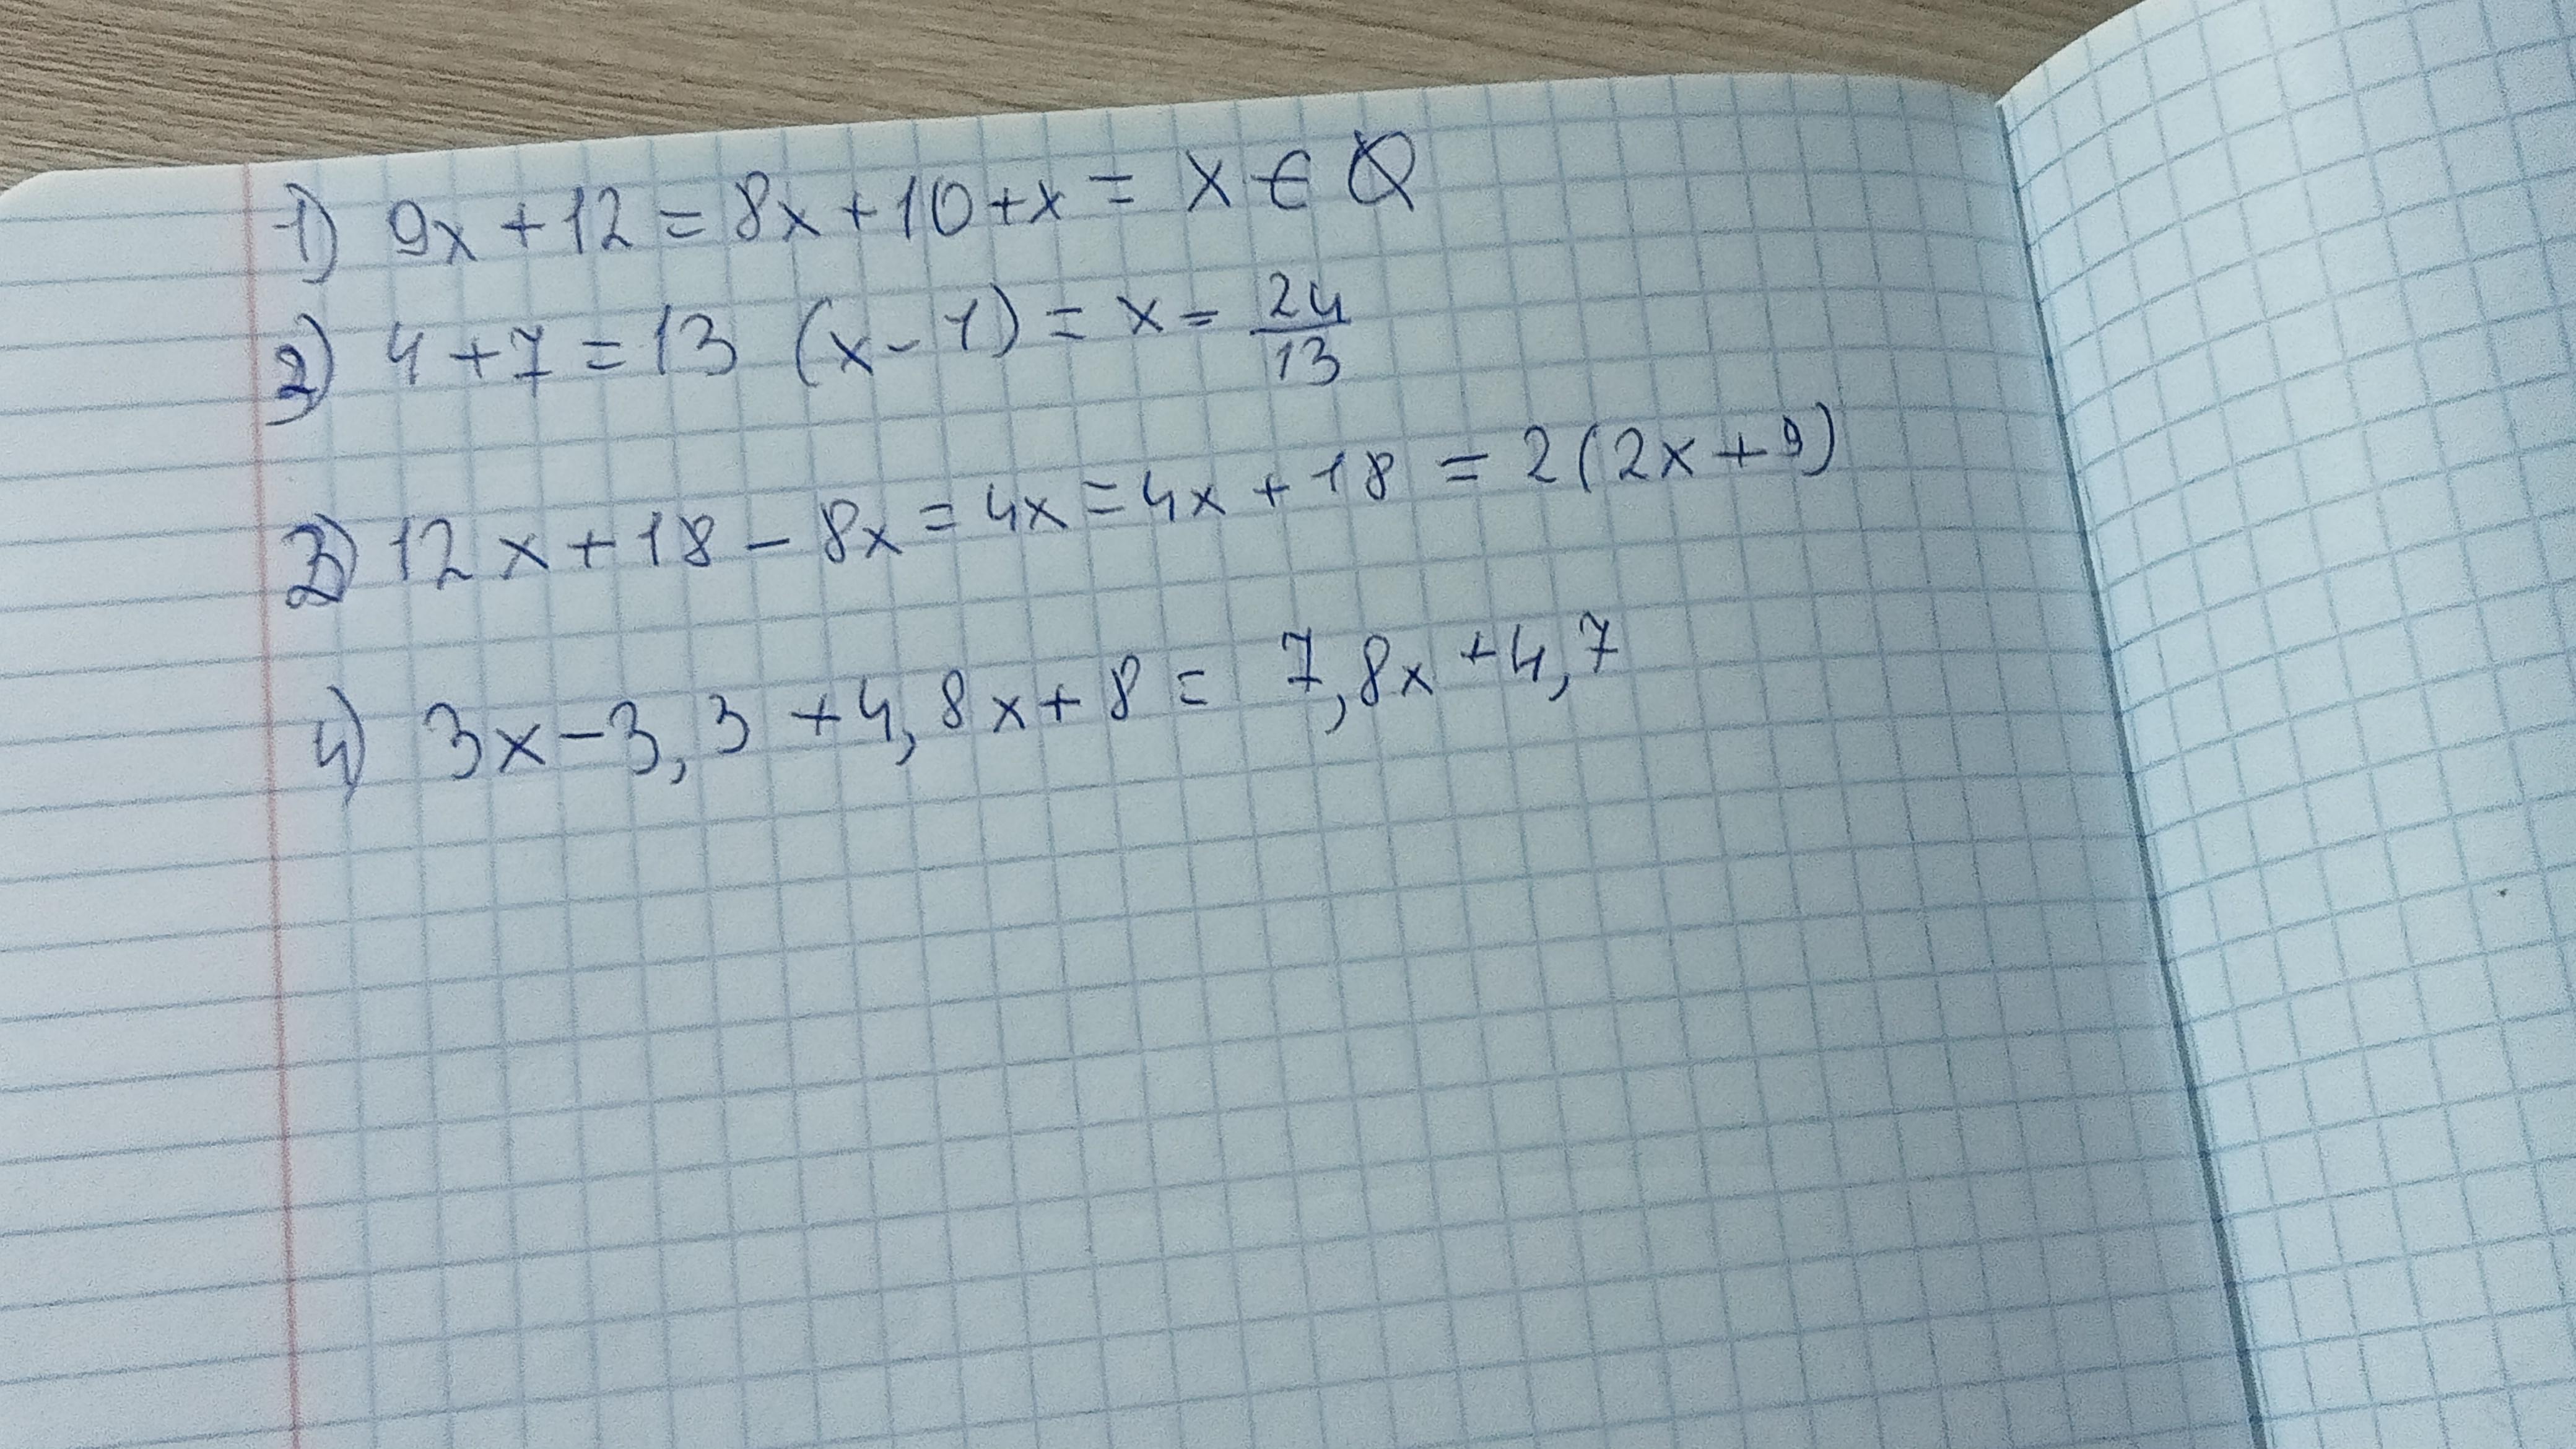 1) 9x + 12 = 8x + 10 + x = x ∈ ∅
2) 4 + 7 = 13 (x - 1) = x = 24/13
3) 12x + 18 - 8x = 4x = 4x + 18 = 2(2x + 9)
4) 3x - 3,3 + 4,8x + 8 = 7,8x + 4,7